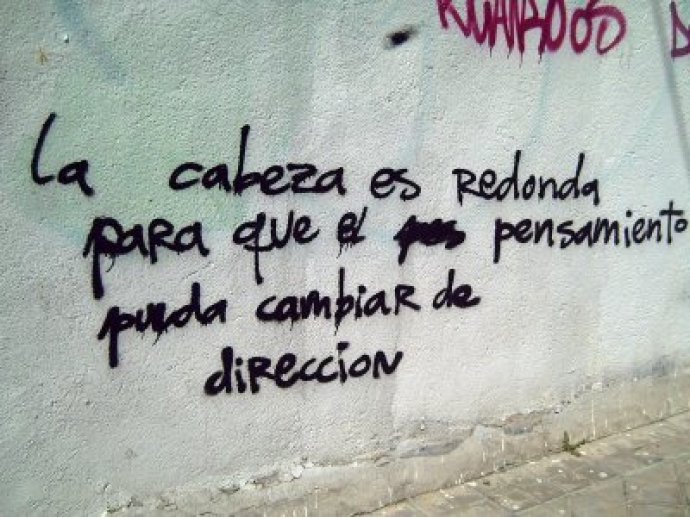 La cabeza es Redonda
paRa que el pensamiento
pueda cambiaR de
diReccion